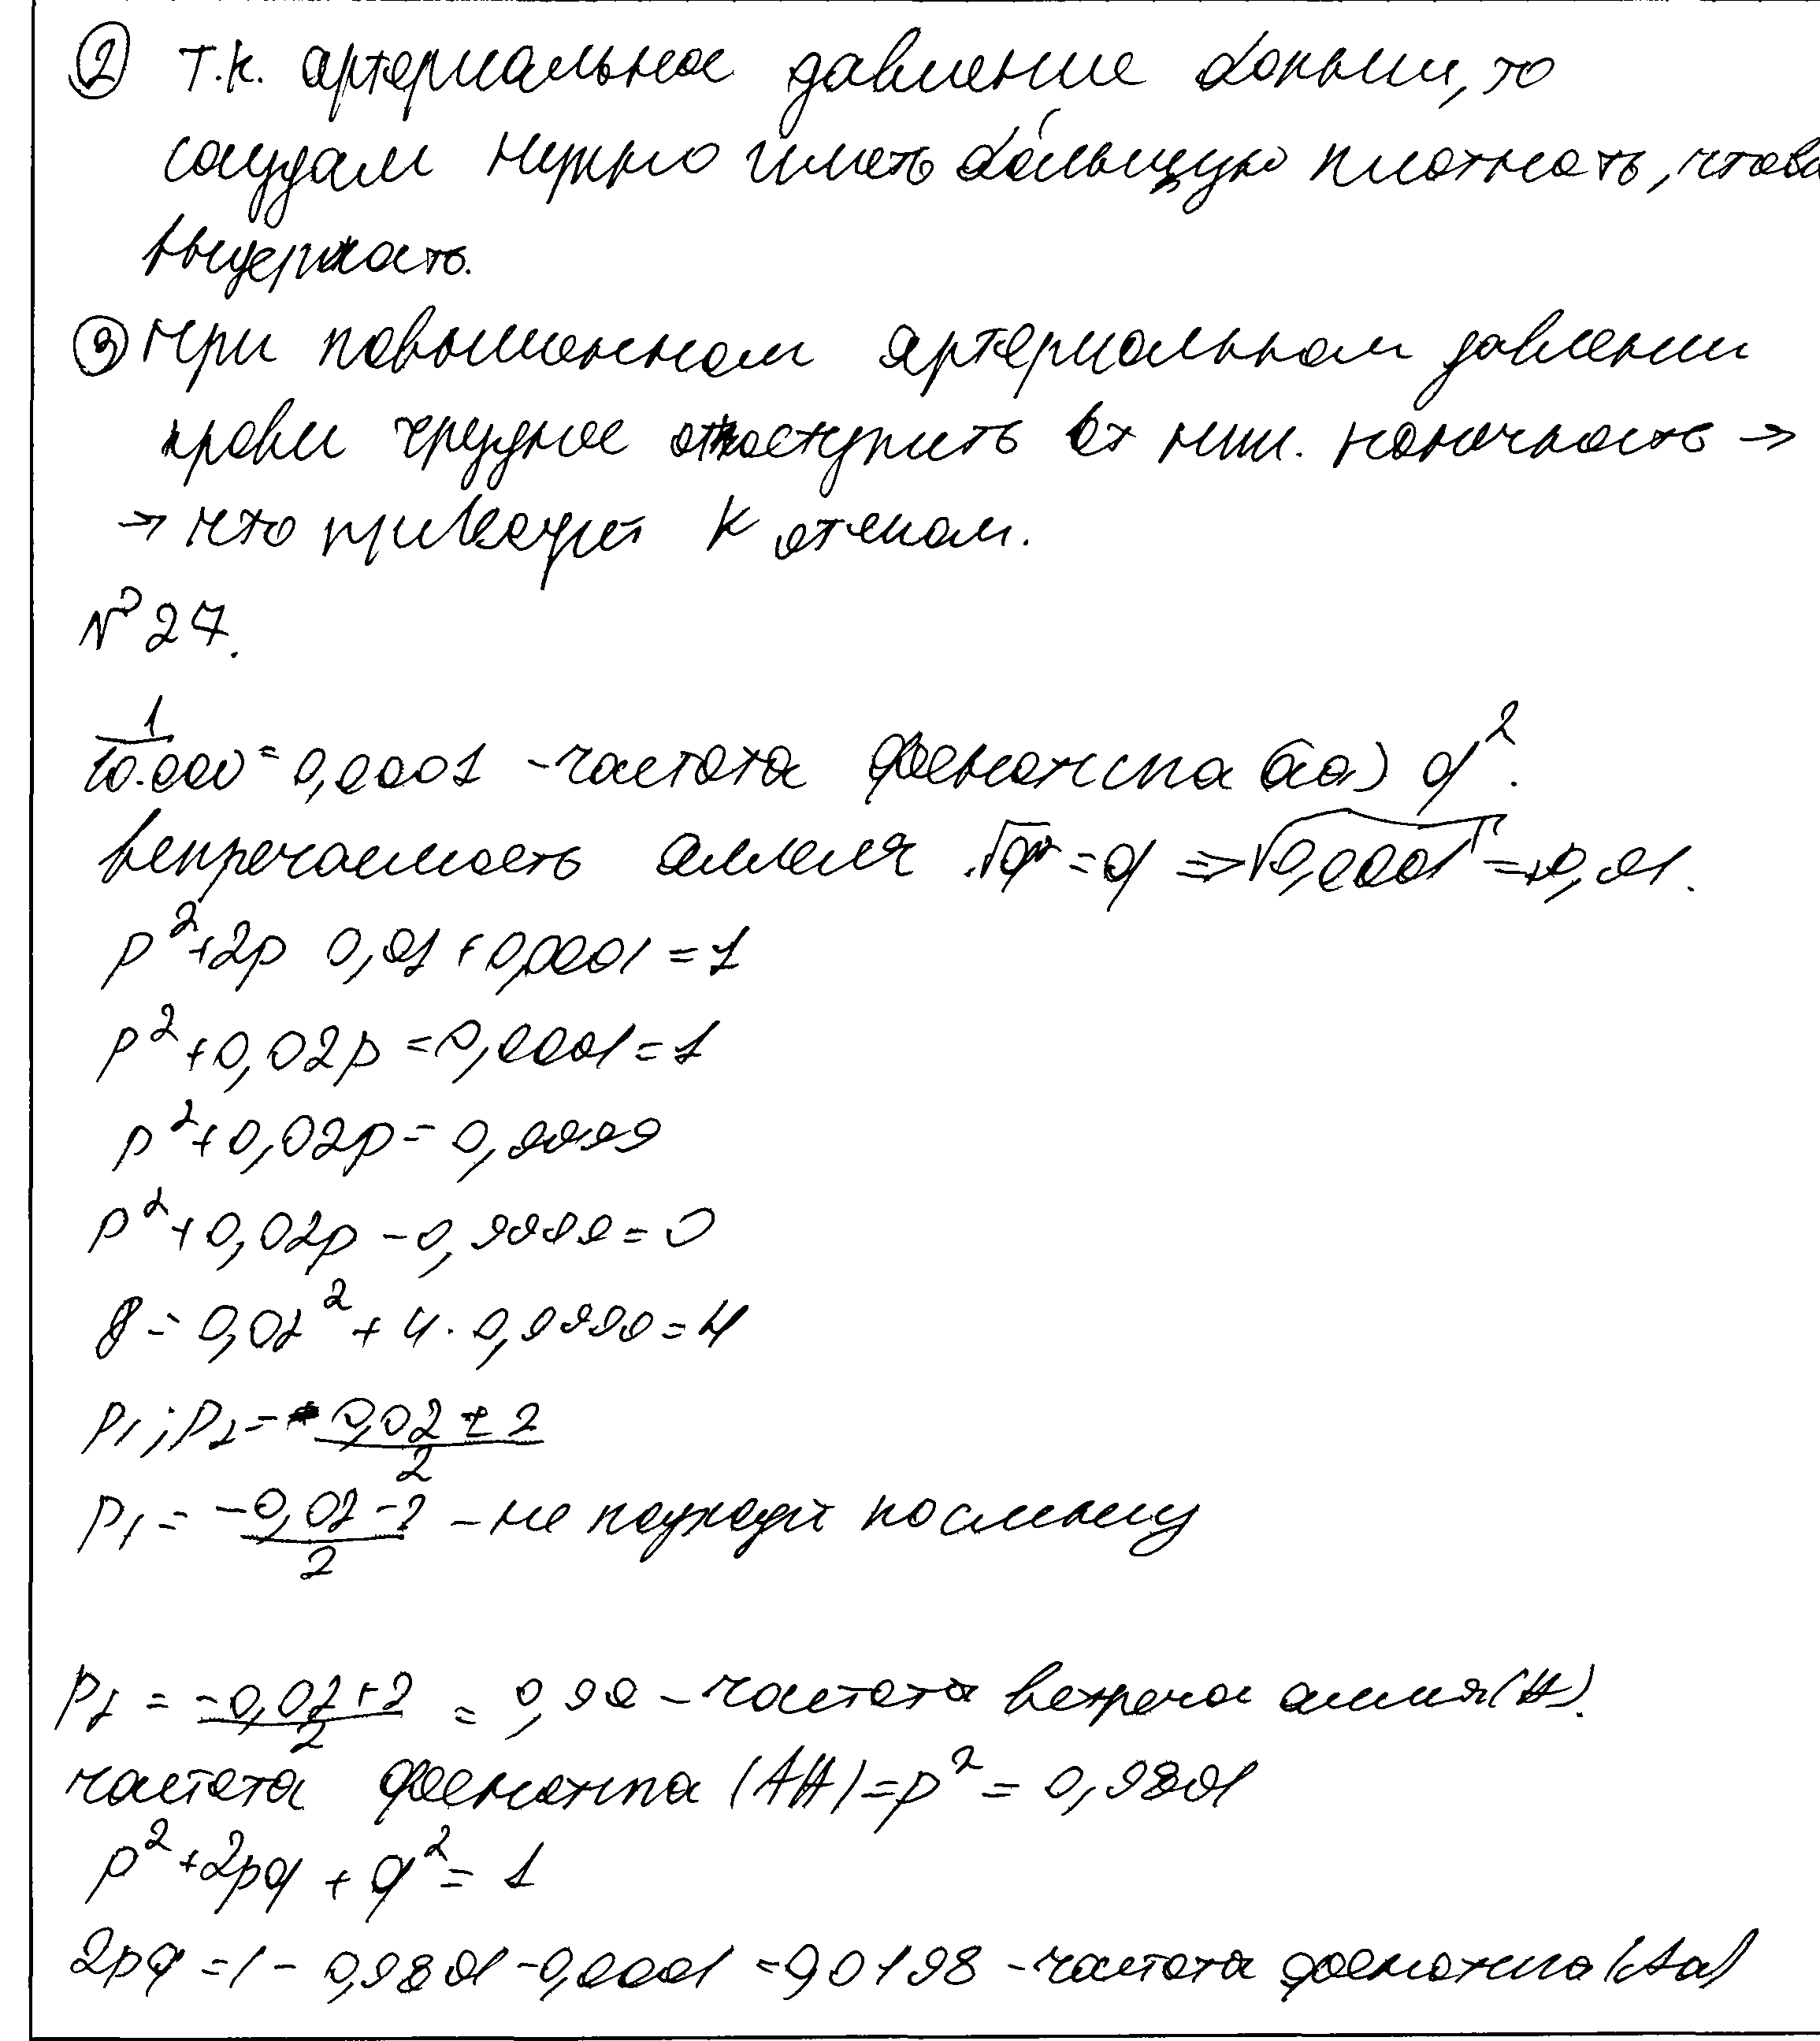 ② Т.к. артериальное давление больши, то
сосудам нужно иметь бо́льшую плотность, чтобы
выдержать.
③ При повышенном артериальном давлении
крови труднее отступить от ниж. конечность →
→ что приводит к отекам.
№ 27.
1/10.000 = 0,0001 - частота фенотипа (аа) q².
встречаемость аллеля √q² = q => √0,0001 = 0,01.
p² + 2p 0,01 + 0,0001 = 1
p² + 0,02p = 0,0001 = 1
p² + 0,02p = 0,9999
p² + 0,02p - 0,9999 = 0
D = 0,02² + 4 · 0,9999 = 4
p₁; p₂ = - 0,02 ± 2 / 2
p₁ = -0,02 - 2 / 2 - не подходит по смыслу
p₂ = -0,02 + 2 / 2 = 0,99 - частота встречи аллеля (А).
частота фенотипа (АА) = p² = 0,9801
p² + 2pq + q² = 1
2pq = 1 - 0,9801 - 0,0001 = 0,0198 - частота фенотипа (Аа)